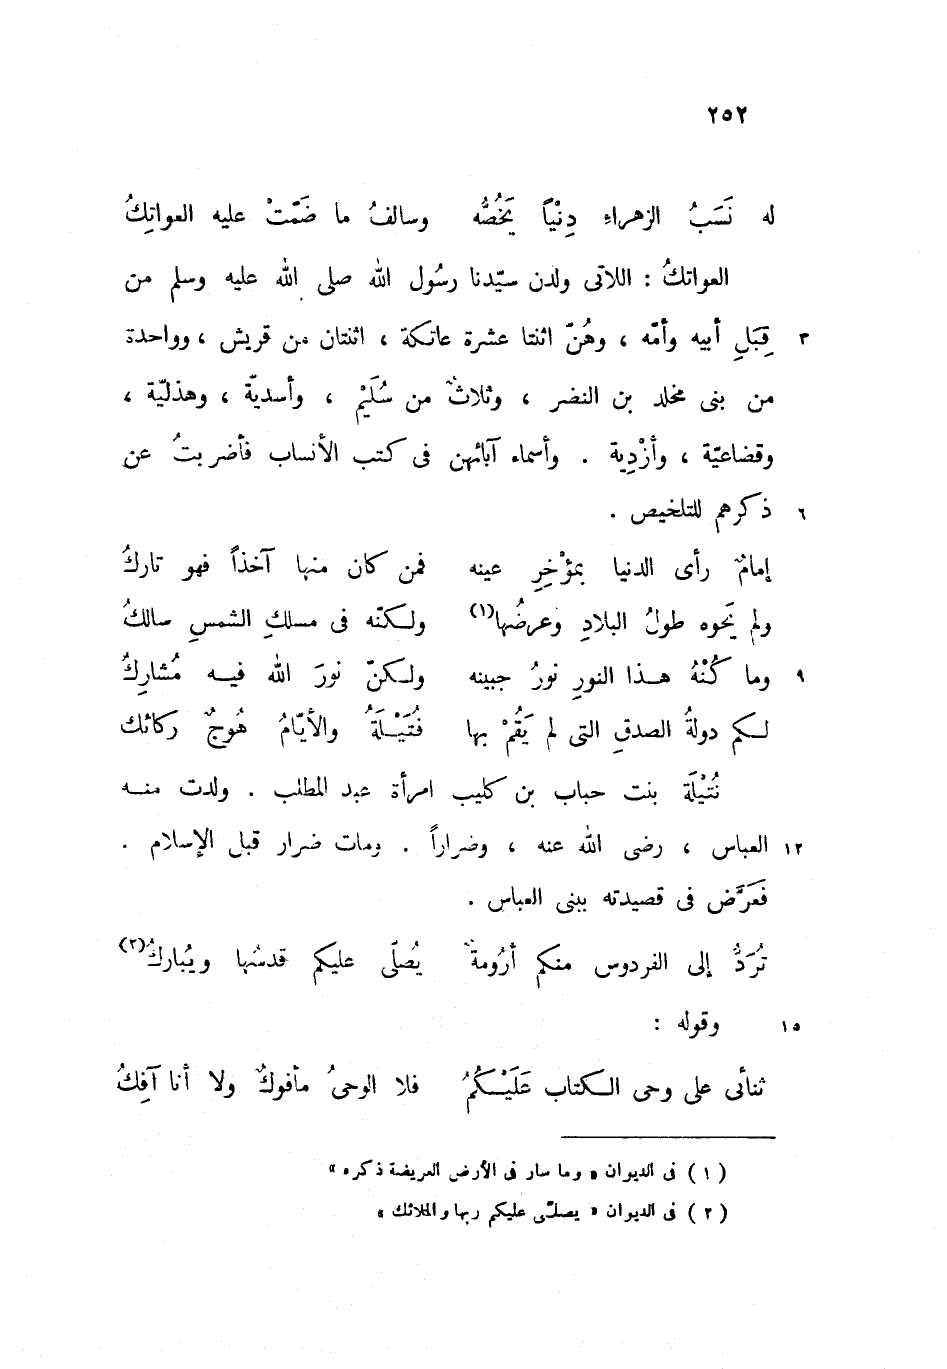 ٢٥٢
له نَسَبُ الزهراءِ دِنْياً يَخُصُّه وسالفُ ما ضَمّتْ عليه العواتِكُ
العواتكُ : اللاتى ولدن سيّدنا رسُول الله صلى الله عليه وسلم من
٣ قِبَلِ أبيه وأمّه ، وهُنّ اثنتا عشرة عاتكة ، اثنتان من قريش ، وواحدة
من بنى مخلد بن النضر ، وثلاثٌ من سُلَيْمٍ ، وأسديّة ، وهذليّة ،
وقضاعيّة ، وأزْدِية . وأسماء آبائهن فى كتب الأنساب فأضربتُ عن
٦ ذكرهم للتلخيص .
إمامٌ رأى الدنيا بمؤْخِرِ عينه فمن كان منها آخذاً فهو تاركُ
ولم يَحوه طولُ البلادِ وعرضُها(١) ولكنّه فى مسلكِ الشمسِ سالكُ
٩ وما كُنْهُ هذا النورِ نورُ جبينه ولكنّ نورَ الله فيه مُشارِكُ
لكم دولةُ الصدقِ التى لم يَقُمْ بها نُتَيْلَةُ والأيّامُ هُوجٌ ركائك
نُتَيْلَة بنت حباب بن كليب امرأة عبد المطلب . ولدت منه
١٢ العباس ، رضى الله عنه ، وضراراً . ومات ضرار قبل الإسلام .
فعَرَّض فى قصيدته ببنى العباس .
تُرَدُّ إلى الفردوس منكم أرُومةٌ يُصلّى عليكم قدسُها ويُباركُ(٢)
١٥ وقوله :
ثنائى على وحى الكتاب عَلَيْكُمُ فلا الوحىُ مأفوكٌ ولا أنا آفِكُ
(١) فى الديوان « وما سار فى الأرض العريضة ذكره »
(٢) فى الديوان « يصلّى عليكم ربها والملائك »